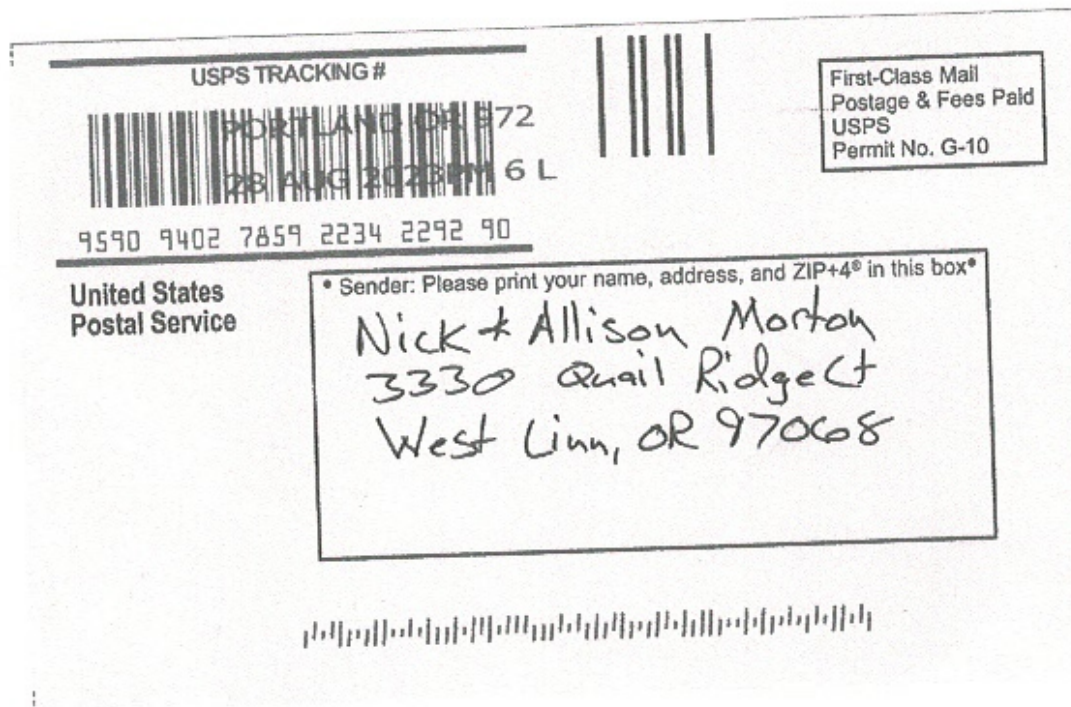 USPS TRACKING #
PORTLAND OR 972
28 AUG 2023 PM 6 L
9590 9402 7859 2234 2292 90
First-Class Mail
Postage & Fees Paid
USPS
Permit No. G-10
United States
Postal Service
• Sender: Please print your name, address, and ZIP+4® in this box•
Nick & Allison Morton
3330 Quail Ridge Ct
West Linn, OR 97068